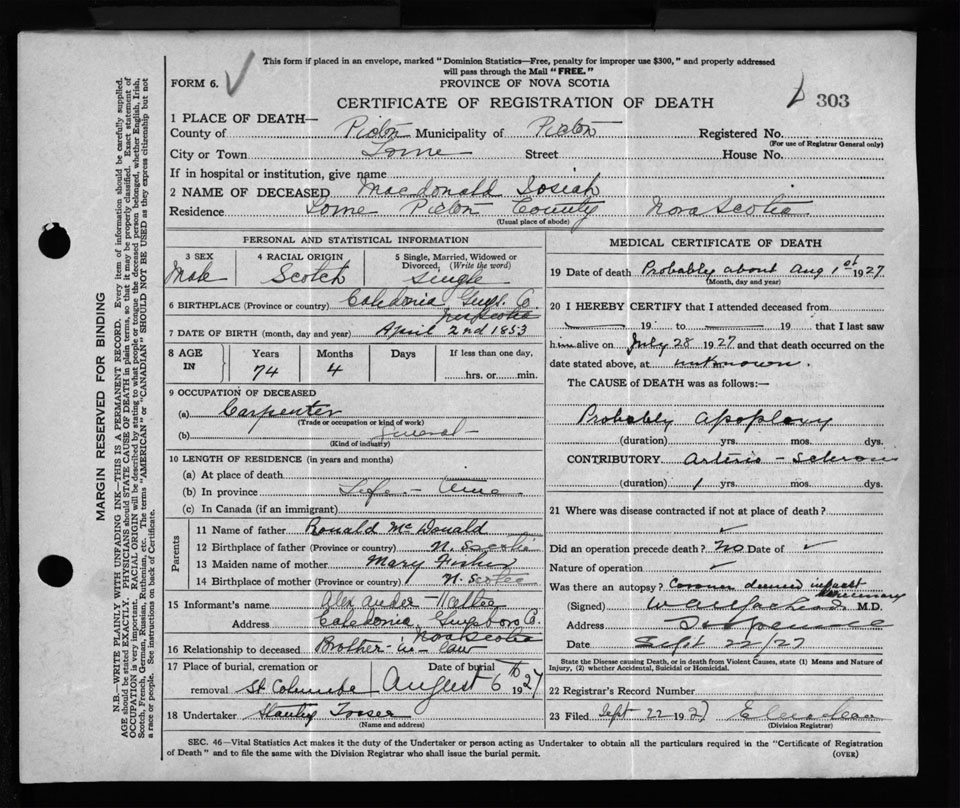 This form if placed in an envelope, marked "Dominion Statistics—Free, penalty for improper use $300," and properly addressed
will pass through the Mail "FREE."
FORM 6.
PROVINCE OF NOVA SCOTIA
CERTIFICATE OF REGISTRATION OF DEATH
303
1 PLACE OF DEATH—
County of Pictou Municipality of Pictou Registered No.
(For use of Registrar General only)
City or Town Lorne Street House No.
If in hospital or institution, give name
2 NAME OF DECEASED Macdonald Josiah
Residence Lorne Pictou County Nova Scotia
(Usual place of abode)
PERSONAL AND STATISTICAL INFORMATION
3 SEX
Male
4 RACIAL ORIGIN
Scotch
5 Single, Married, Widowed or
Divorced, (Write the word)
Single
6 BIRTHPLACE (Province or country) Caledonia Guys. Co.
Nova Scotia
7 DATE OF BIRTH (month, day and year) April 2nd 1853
8 AGE IN
Years 74
Months 4
Days
If less than one day,
hrs. or min.
9 OCCUPATION OF DECEASED
(a) Carpenter
(Trade or occupation or kind of work)
(b) General
(Kind of industry)
10 LENGTH OF RESIDENCE (in years and months)
(a) At place of death
(b) In province Life-time
(c) In Canada (if an immigrant)
Parents
11 Name of father Ronald McDonald
12 Birthplace of father (Province or country) N. Scotia
13 Maiden name of mother Mary Fisher
14 Birthplace of mother (Province or country) N. Scotia
15 Informant's name Alexander
Caledonia Guysboro Co.
Nova Scotia
16 Relationship to deceased Brother-in-law
17 Place of burial, cremation or Date of burial
removal St. Columba August 6th 1927
18 Undertaker
(Name and address)
MEDICAL CERTIFICATE OF DEATH
19 Date of death Probably about Aug 1st 1927
(Month, day and year)
20 I HEREBY CERTIFY that I attended deceased from
19 to 19 that I last saw
him alive on July 28 1927 and that death occurred on the
date stated above, at unknown.
The CAUSE of DEATH was as follows:—
Probably Apoplexy
(duration) yrs. mos. dys.
CONTRIBUTORY Arterio-Sclerosis
(duration) 1 yrs. mos. dys.
21 Where was disease contracted if not at place of death?
Did an operation precede death? No Date of
Nature of operation
Was there an autopsy? Coroner deemed inquest
unnecessary
(Signed) M.D.
Address
Date Sept 22/27
State the Disease causing Death, or in death from Violent Causes, state (1) Means and Nature of
Injury, (2) whether Accidental, Suicidal or Homicidal.
22 Registrar's Record Number
23 Filed Sept 22 1927
(Division Registrar)
SEC. 46—Vital Statistics Act makes it the duty of the Undertaker or person acting as Undertaker to obtain all the particulars required in the "Certificate of Registration
of Death" and to file the same with the Division Registrar who shall issue the burial permit.
(OVER)
MARGIN RESERVED FOR BINDING
N.B.—WRITE PLAINLY WITH UNFADING INK—THIS IS A PERMANENT RECORD. Every item of information should be carefully supplied.
AGE should be stated EXACTLY. PHYSICIANS should STATE CAUSE OF DEATH in plain terms, so that it may be properly classified. Exact statement of
OCCUPATION is very important. RACIAL ORIGIN will be described by stating to what people or tongue the deceased person belonged, whether English, Irish,
Scotch, French, German, Russian, Ruthenian, etc. The terms "AMERICAN" or "CANADIAN" SHOULD NOT BE USED as they express citizenship but not
a race or people. See instructions on back of Certificate.